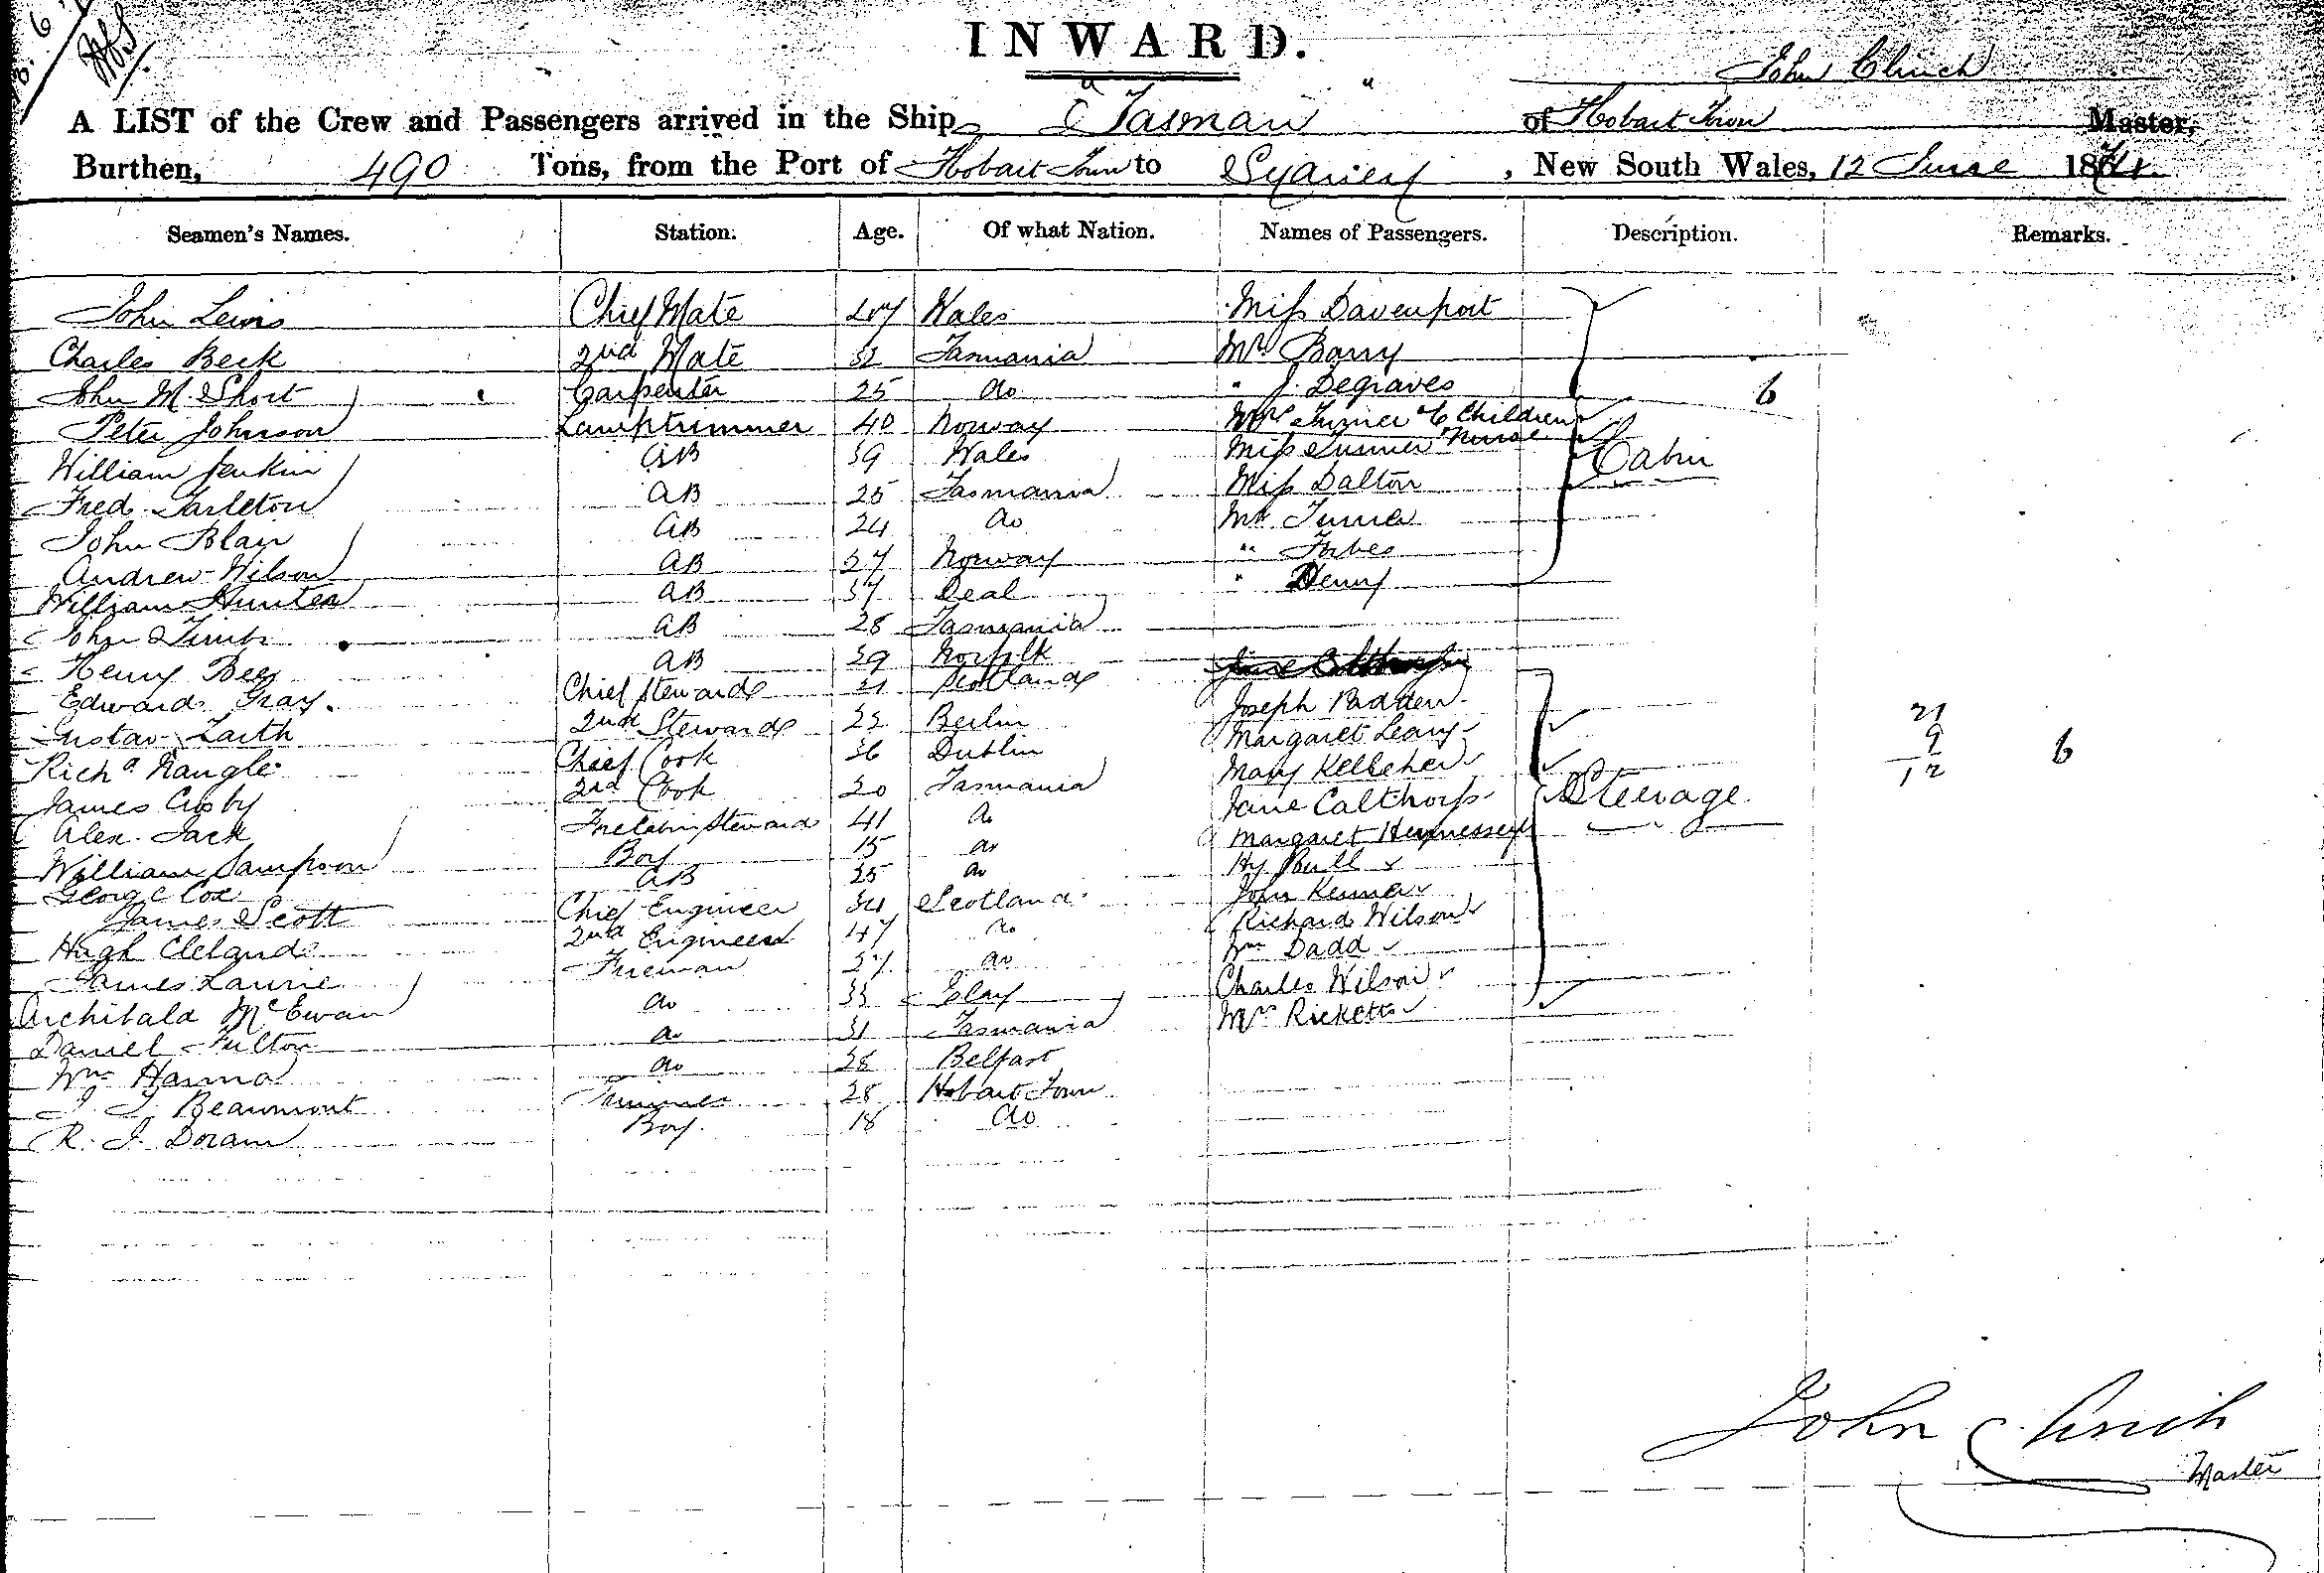 INWARD.
John Clinch
A LIST of the Crew and Passengers arrived in the Ship "Tasman" of Hobart Town Master,
Burthen, 490 Tons, from the Port of Hobart Town to Sydney, New South Wales, 12 June 1874.
Seamen's Names. Station. Age. Of what Nation. Names of Passengers. Description. Remarks.
John Lewis Chief Mate Wales Miss Davenport
Charles Beck 2nd Mate 32 Tasmania Mr Barry
John M. Short Carpenter 25 do " J. Degraves 6
Peter Johnson Lamptrimmer 40 Norway Mrs Turner & 6 Children
William Jenkin AB 39 Wales Miss Turner Nurse Cabin
Fred. Tarleton AB 25 Tasmania Miss Dalton
John Blair AB 24 do Mr Turner
Andrew Wilson AB 37 Norway " Forbes
William Hunter AB 37 Deal " Denny
John AB 28 Tasmania
Henry Bee AB 39 Norfolk
Edward Gray Chief Steward 31 Scotland Joseph Padden
Gustav 2nd Steward 23 Berlin Margaret Leary 21
Richd Nangle Chief Cook 36 Dublin Mary Kelleher 9 6
James Crosby 2nd Cook 20 Tasmania Jane Calthorp Steerage 12
Alex. Jack Forecabin Steward 41 do Margaret Hennessey
William Sampson Boy 15 do Hy Bull
George Cox AB 25 do John
James Scott Chief Engineer 34 Scotland Richard Wilson
Hugh Cleland 2nd Engineer 47 do Wm Dadd
James Laurie Fireman 37 do Charles Wilson
Archibald McEwan do 33 Mrs Ricketts
Daniel Fulton do 31 Tasmania
Wm Hanna do 28 Belfast
J. J. Beaumont Trimmer 28 Hobart Town
R. J. Doran Boy 18 do
John Clinch
Master